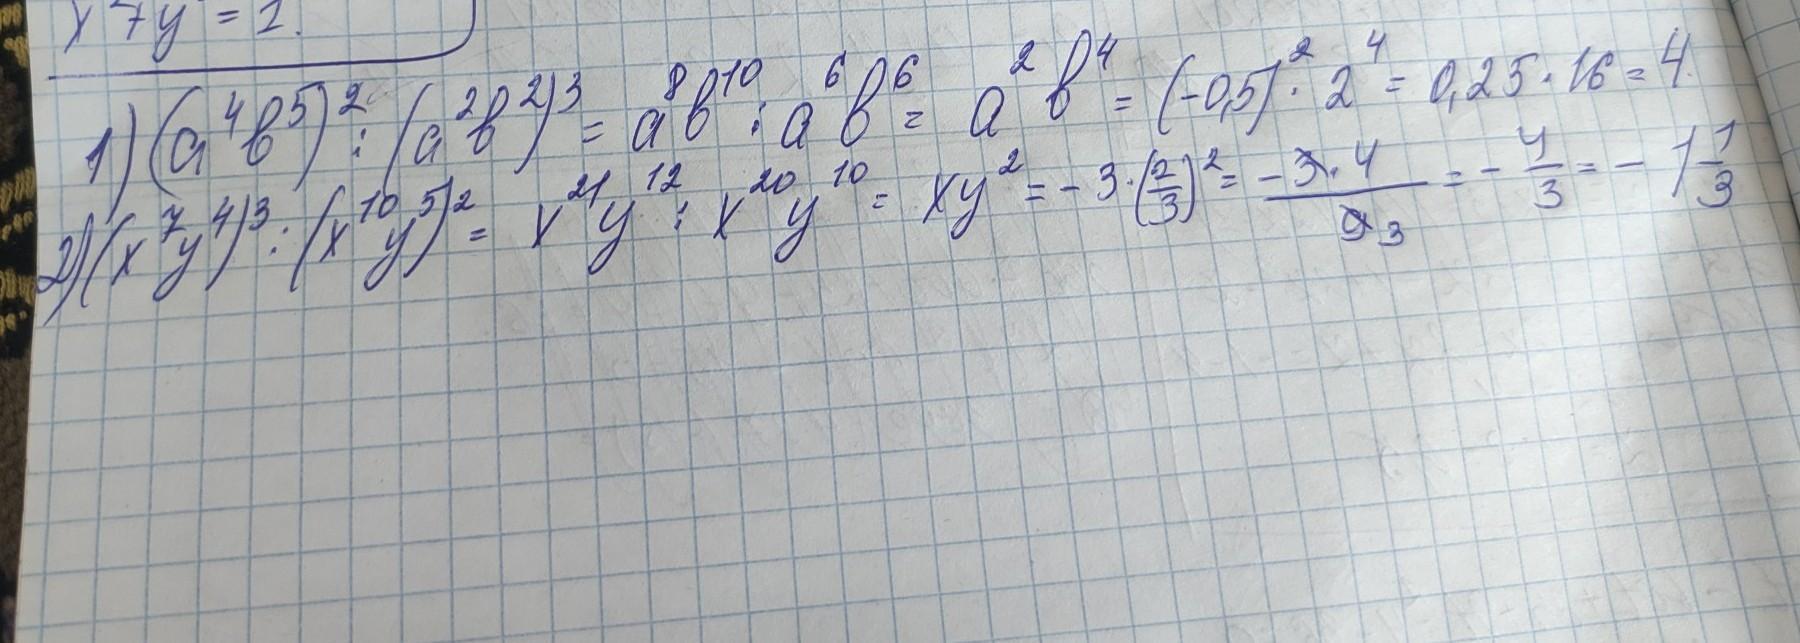 x⁷y = 1.
1) (a⁴b⁵)² : (a²b²)³ = a⁸b¹⁰ : a⁶b⁶ = a²b⁴ = (-0,5)² · 2⁴ = 0,25 · 16 = 4.
2) (x⁷y⁴)³ : (x¹⁰y⁵)² = x²¹y¹² : x²⁰y¹⁰ = xy² = -3 · (2/3)² = -3 · 4 / 9 3 = - 4/3 = - 1 1/3